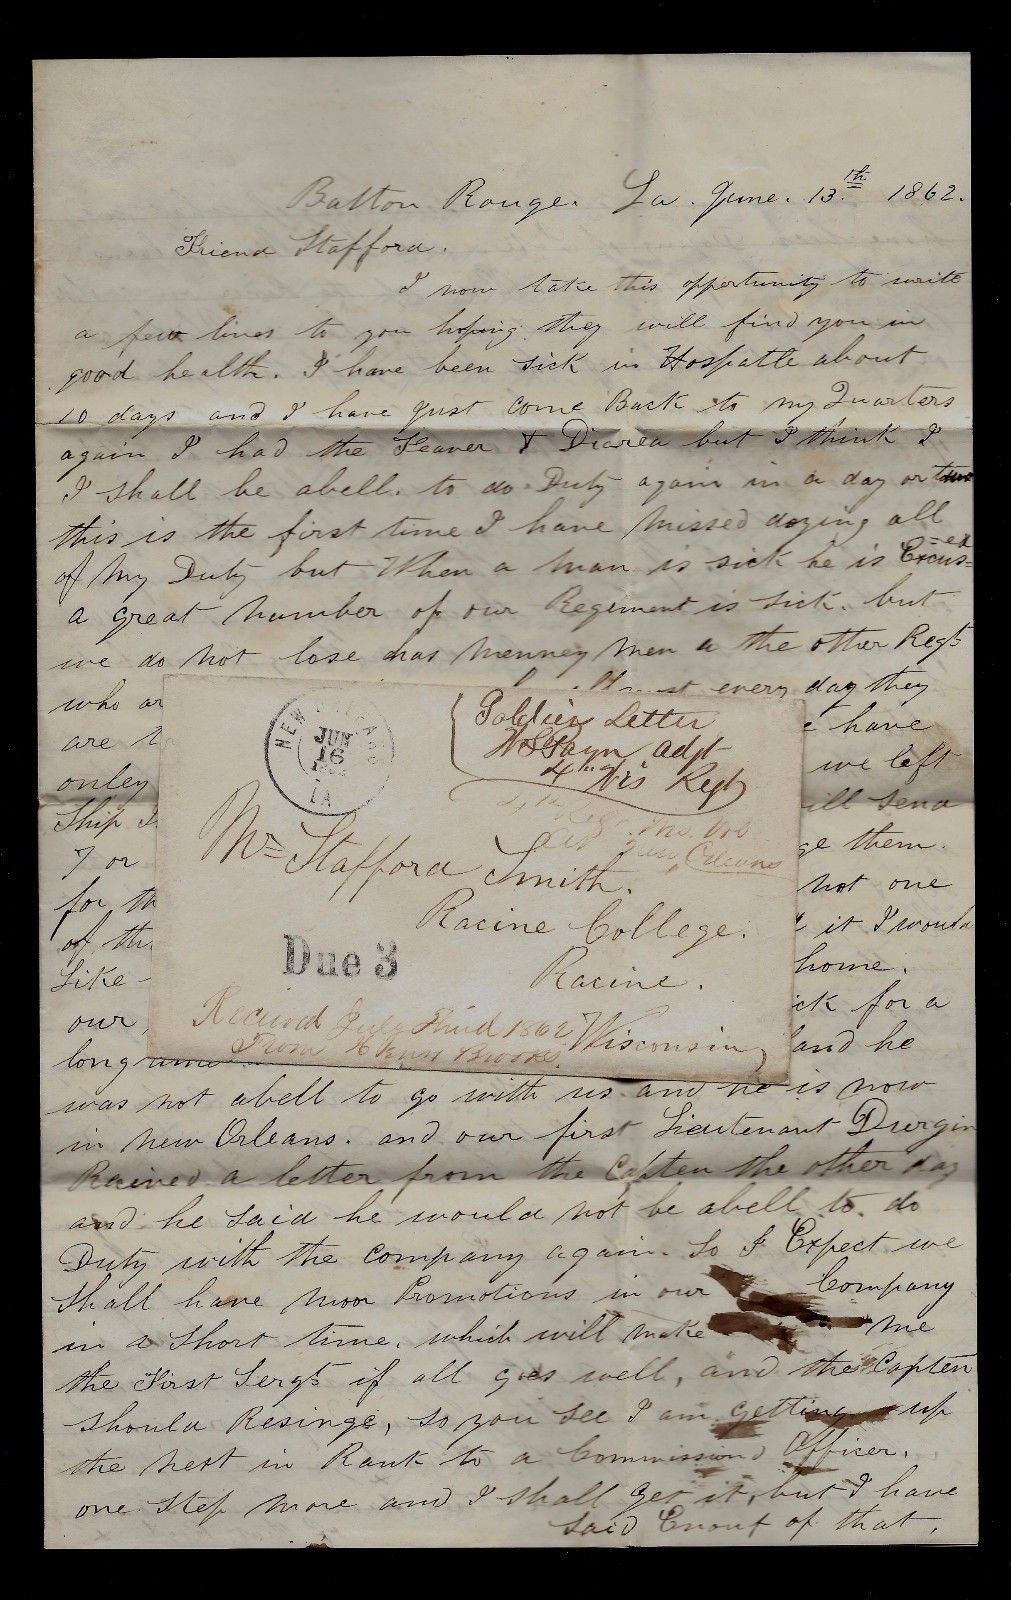 Batton Rouge. La. June. 13.th 1862.
Friend Stafford.
I now take this oppertunity to write
a few lines to you hoping they will find you in
good health. I have been sick in Hospatle about
10 days and I have Just Come Back to my Quarters
again I had the Feaver & Diarea but I think I
I shall be abell. to do Duty again in a day or two
this is the first time I have missed doying all
of my Duty but When a man is sick he is Excus=ed
a great number of our Regiment is sick. but
we do not lose has menney men a the other Regts
who ar
every day they
are
have
onley
we left
Ship
will send
7 or
ge them.
for th
not one
of th
it I would
Like
home.
our
ick for a
long
and he
was not abell to go with us and he is now
in New Orleans. and our first Lieutenant Durgin
Recived a letter from the Capten the other day
and he said he would not be abell to do
Duty with the Company again. So I Expect we
shall have moor Promotions in our Company
in a short time. which will make me
the First Sergt if all goes well, and the Capten
should Resinge, so you see I am getting up
the next in Rank to a Commissiond Officer.
one step more and I shall get it, but I have
said Enouf of that.
NEW ORLEANS
JUN
16
LA
Soldiers Letter
Adgt
4th Wis Regt
4th Regt. Wis. Vol
New Orleans
Mr. Stafford Smith.
Racine College.
Racine.
Wisconsin
Due 3
Recieved July Third 1862
From Brooks.